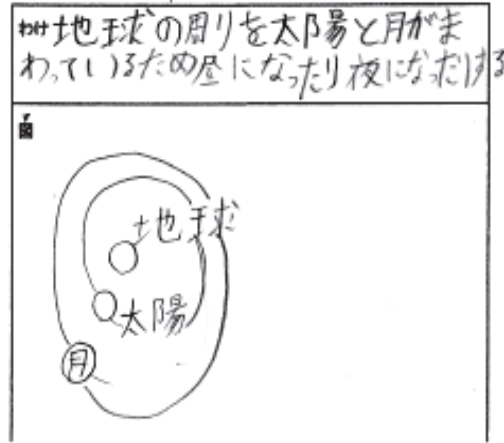 わけ 地球の周りを太陽と月がま
わっているため昼になったり夜になったりする
図
地球
太陽
月